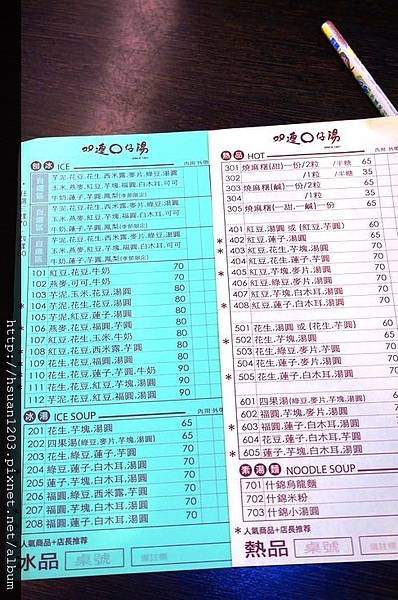 四連〇仔湯
刨冰 ICE 內用 外帶
自選區
芋泥.花豆.花生.西米露.麥片.綠豆.湯圓
玉米.燕麥.紅豆.芋塊.福圓.白木耳.可可
牛奶.蓮子.芋圓.鳳梨(季節限定)
自選區
芋泥.花豆.花生.西米露.麥片.綠豆.湯圓
玉米.燕麥.紅豆.芋塊.福圓.白木耳.可可
牛奶.蓮子.芋圓.鳳梨(季節限定)
自選區
芋泥.花豆.花生.西米露.麥片.綠豆.湯圓
玉米.燕麥.紅豆.芋塊.福圓.白木耳.可可
牛奶.蓮子.芋圓.鳳梨(季節限定)
101 紅豆.花豆.牛奶 70
102 燕麥.可可.牛奶 70
103 芋泥.玉米.花豆.湯圓 80
104 芋泥.花豆.蓮子.湯圓 80
105 芋泥.紅豆.蓮子.湯圓 80
* 106 燕麥.花豆.福圓.芋圓 80
107 紅豆.花生.玉米.牛奶 80
* 108 紅豆.花豆.西米露.芋圓 80
* 109 花生.花豆.福圓.湯圓 80
* 110 花生.花豆.蓮子.芋圓.牛奶 90
111 花生.花豆.紅豆.芋塊.湯圓 90
112 芋泥.花豆.紅豆.福圓.湯圓 90
冰湯 ICE SOUP 內用 外帶
201 花生.芋塊.湯圓 65
202 四果湯(綠豆.麥片.芋塊.湯圓) 65
203 花生.花豆.蓮子.芋圓 70
204 綠豆.蓮子.白木耳.湯圓 70
205 蓮子.芋塊.白木耳.湯圓 70
206 福圓.綠豆.西米露.芋圓 70
207 福圓.綠豆.白木耳.芋圓 70
208 福圓.蓮子.白木耳.湯圓 70
人氣商品+店長推荐
冰品 桌號 備註欄
四連〇仔湯
熱品 HOT 內用 外帶
301 燒麻糬(甜)一份/2粒 /半糖 65
302 /1粒 /半糖 35
303 燒麻糬(鹹)一份/2粒 65
304 /1粒 35
305 燒麻糬(一甜.一鹹)一份 65
401 紅豆.湯圓 或 (紅豆.芋圓) 60
* 402 紅豆.蓮子.湯圓 65
* 403 紅豆.花生.芋塊.湯圓 70
404 紅豆.花生.蓮子.芋圓 70
* 405 紅豆.芋塊.麥片.湯圓 70
406 紅豆.綠豆.麥片.湯圓 70
407 紅豆.芋塊.白木耳.湯圓 70
* 408 紅豆.蓮子.白木耳.湯圓 70
501 花生.湯圓 或 (花生.芋圓) 60
* 502 花生.芋塊.湯圓 65
503 花生.綠豆.麥片.芋圓 70
504 花生.蓮子.麥片.湯圓 70
* 505 花生.蓮子.白木耳.湯圓 70
601 四果湯(綠豆.麥片.芋塊.湯圓) 65
602 福圓.芋塊.麥片.湯圓 70
* 603 福圓.花生.芋塊.湯圓 70
604 福圓.花生.白木耳.芋圓
* 605 蓮子.芋塊.白木耳.湯圓
素湯麵 NOODLE SOUP
701 什錦烏龍麵
702 什錦米粉
703 什錦小湯圓
* 人氣商品+店長推荐
熱品 桌號 備註欄
http://hsuan1203.pixnet.net/album